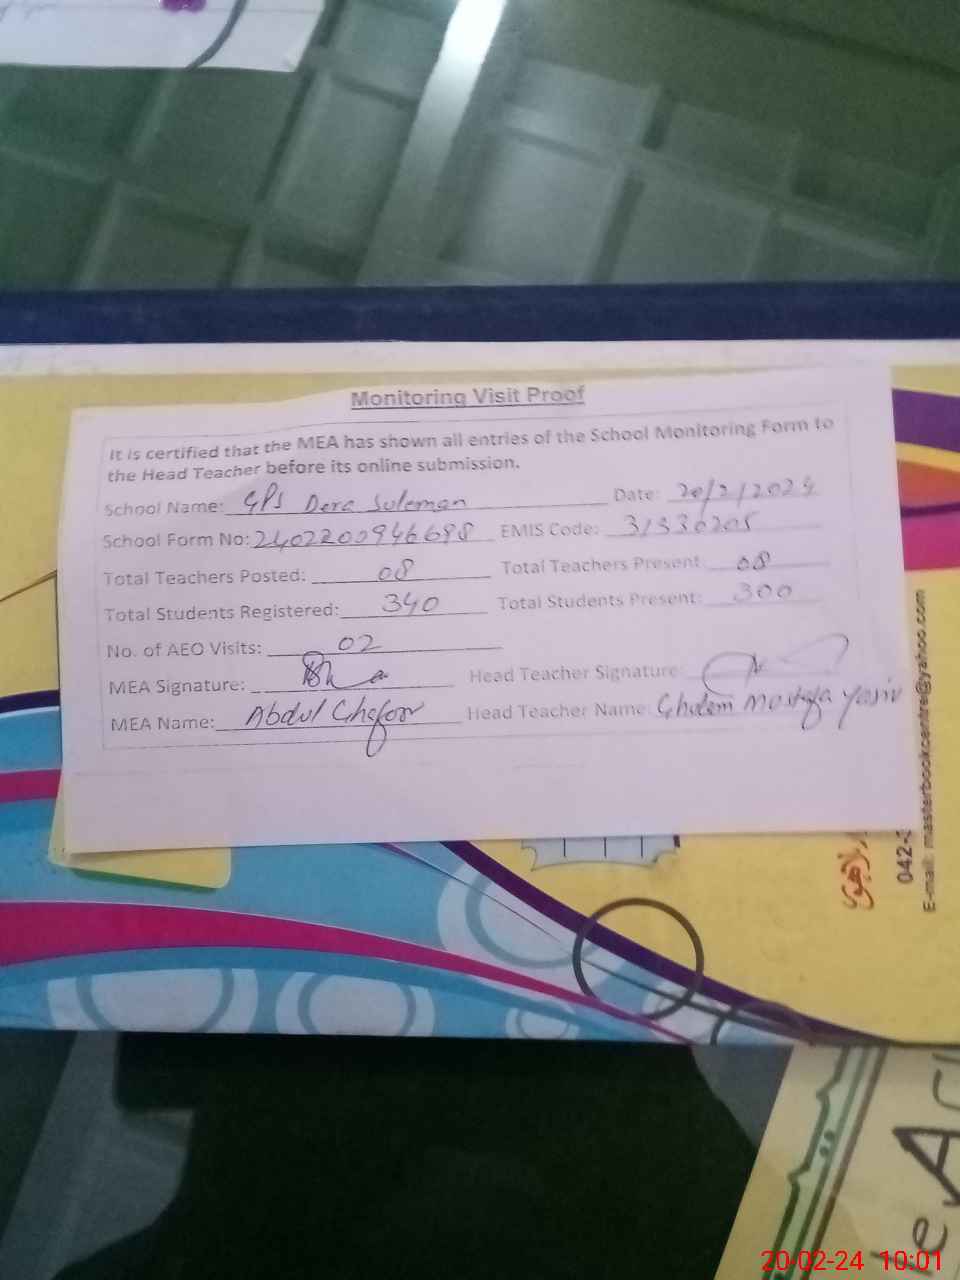 Monitoring Visit Proof
It is certified that the MEA has shown all entries of the School Monitoring Form to
the Head Teacher before its online submission.
School Name: GPS Dera Suleman Date: 20/2/2024
School Form No: 2402200946698 EMIS Code: 31330205
Total Teachers Posted: 08 Total Teachers Present: 08
Total Students Registered: 340 Total Students Present: 300
No. of AEO Visits: 02
MEA Signature: Head Teacher Signature:
MEA Name: Abdul Ghafoor Head Teacher Name: Ghulam Mostafa yasir
042-
E-mail: masterbookcentre@yahoo.com
20-02-24 10:01